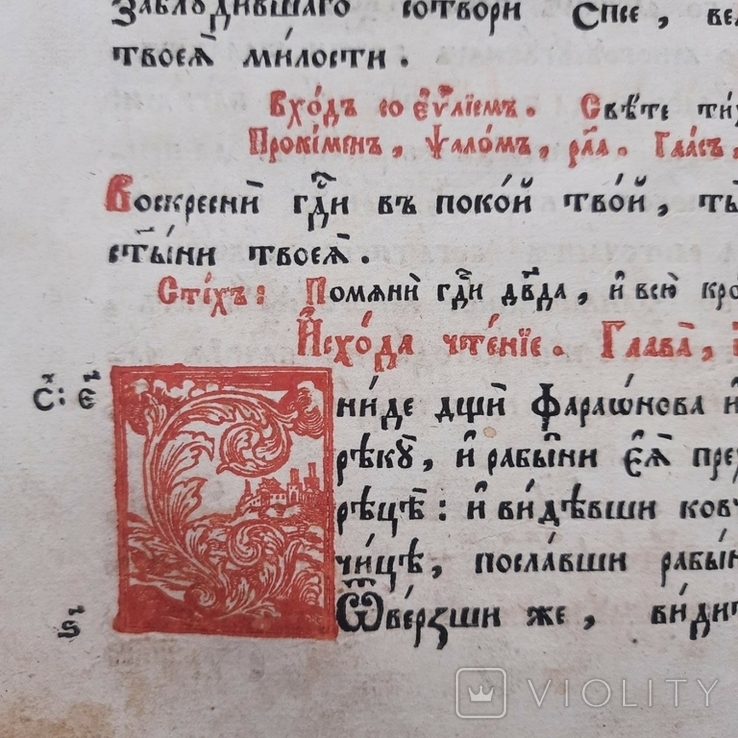 Заблꙋдившаго сотвори Сп҃се, ве
твоеѧ̀ ми́лости.
Вхо́дъ со є҆ѵⷢ҇лїемъ. Свѣ́те ти́х
Проки́менъ, ѱало́мъ, рл҃а. Гла́съ,
Воскреснѝ гдⷭ҇и въ поко́й тво́й, ты
ст҃ы́ни твоеѧ̀.
Сті́хъ: Помѧнѝ гдⷭ҇и дв҃да, и҆ всю̀ кро
И҆схо́да чте́нїе. Глава̀,
С: є҃
ни́де дщѝ Фараѡ́нова и҆
рѣкꙋ̀, и҆ рабы̑ни є҆ѧ̀ пре
рѣцѣ̀: и҆ ви́дѣвши ковч
чи́цѣ, посла́вши рабы́н
Ѿве́рзши же, ви́дит
ѕ҃
VIOLITY